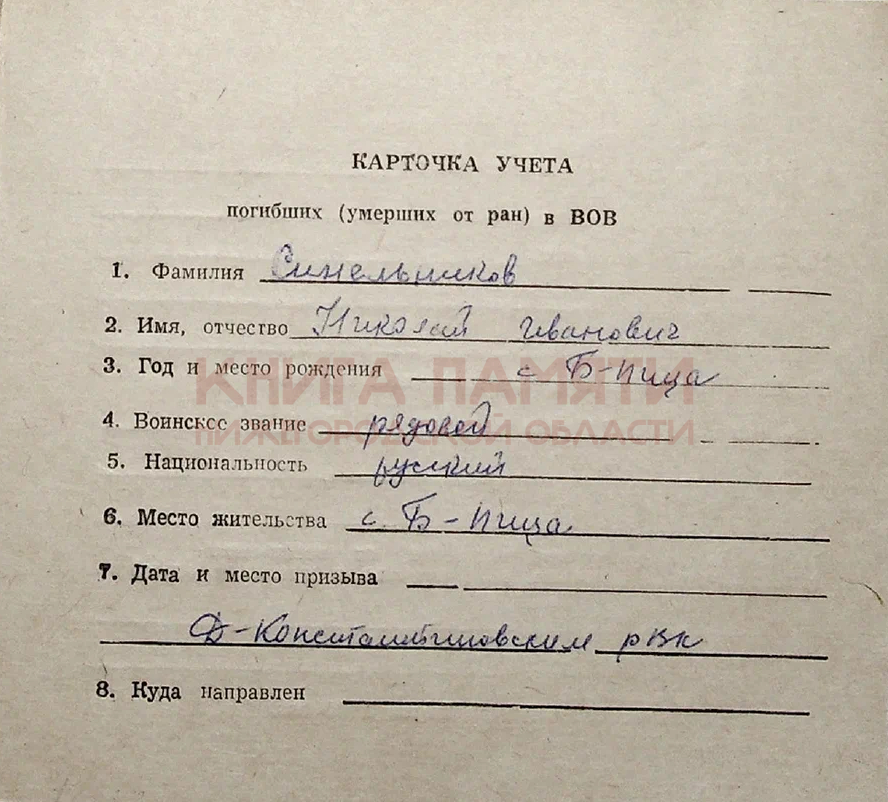 КАРТОЧКА УЧЕТА
погибших (умерших от ран) в ВОВ
1. Фамилия Синельников
2. Имя, отчество Николай Иванович
3. Год и место рождения с. Б-Пица
КНИГА ПАМЯТИ
НИЖЕГОРОДСКОЙ ОБЛАСТИ
4. Воинское звание рядовой
5. Национальность русский
6. Место жительства с. Б-Пица
7. Дата и место призыва
Д-Константиновским рвк
8. Куда направлен